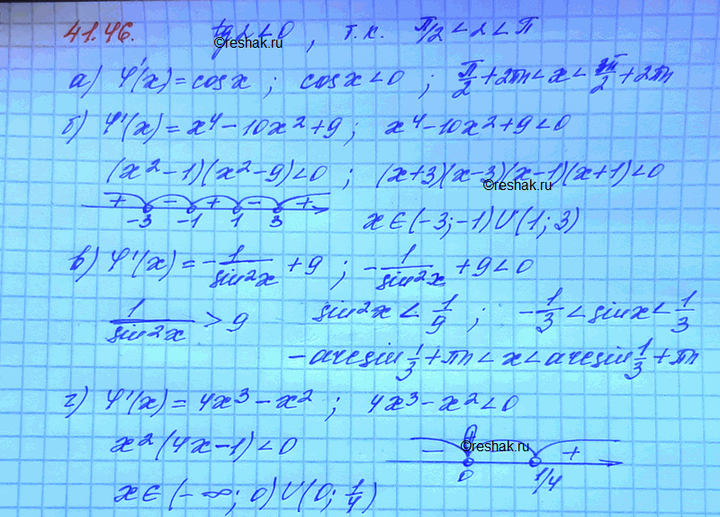 41.46. tg2<0, т.к. π/2<2<π
©reshak.ru
а) φ'(x)=cosx; cosx<0; π/2+2πn<x<3π/2+2πn
б) φ'(x)=x⁴-10x²+9; x⁴-10x²+9<0
(x²-1)(x²-9)<0; (x+3)(x-3)(x-1)(x+1)<0
©reshak.ru
+ - + - +
-3 -1 1 3
x∈(-3;-1)U(1;3)
в) φ'(x)=-1/sin²x+9; -1/sin²x+9<0
1/sin²x>9 sin²x<1/9; -1/3<sinx<1/3
-arcsin1/3+πn<x<arcsin1/3+πn
г) φ'(x)=4x³-x²; 4x³-x²<0
x²(4x-1)<0
©reshak.ru
- +
0 1/4
x∈(-∞;0)U(0;1/4)